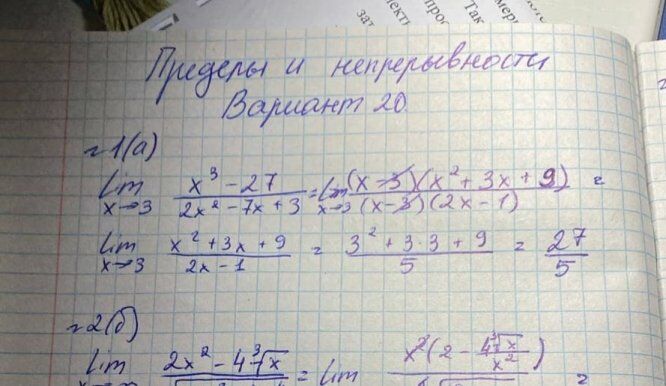 зат
лекти
прос
Так
мери
Пределы и непрерывности
Вариант 20
№1(а)
lim x→3 (x³ - 27)/(2x² - 7x + 3) = lim x→3 ((x - 3)(x² + 3x + 9))/((x - 3)(2x - 1)) =
lim x→3 (x² + 3x + 9)/(2x - 1) = (3² + 3·3 + 9)/5 = 27/5
№2(б)
lim 2x² - 4∛x = lim x²(2 - 4∛x/x²) =